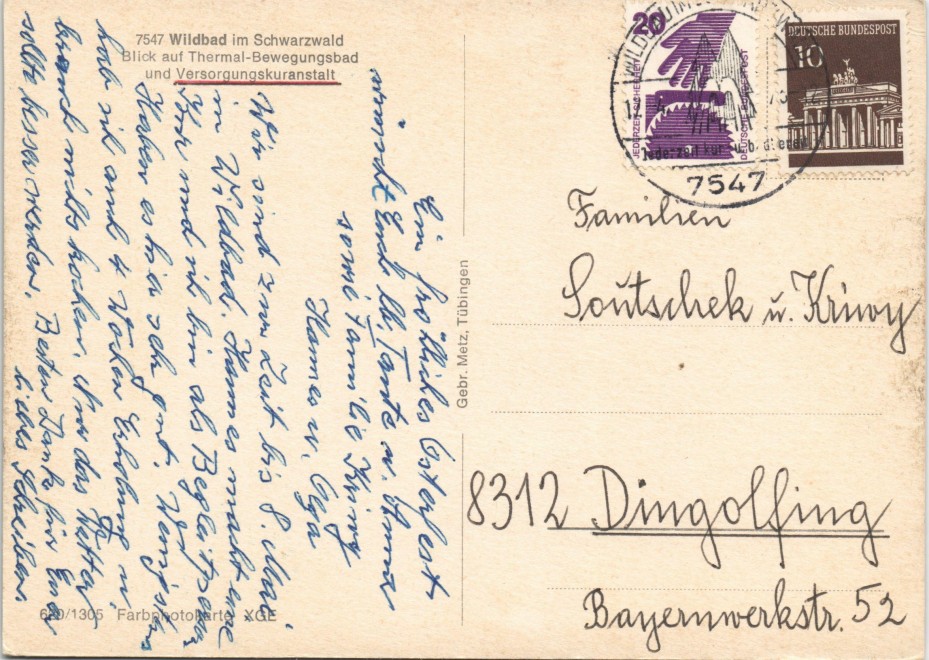 7547 Wildbad im Schwarzwald
Blick auf Thermal-Bewegungsbad
und Versorgungskuranstalt
Ein fröhliches Osterfest
wünscht Euch lb. Tante u.
sowie Familie Kriwy
Hannes u. Olga
Wir sind zur Zeit bis 8. Mai
in Wildbad. Hannes macht eine
Kur und ich bin als Begleitperson
Haben es hier sehr gut. Wenigstens
hab ich auch 4 Wochen Erholung u.
brauch nichts kochen. Nur das Wetter
sollte besser werden. Besten Dank für Euer
liebes Schreiben.
Gebr. Metz, Tübingen
620/1305 Farbphotokarte XGE
20
JEDERZEIT SICHERHEIT
DEUTSCHE BUNDESPOST
DEUTSCHE BUNDESPOST
10
7547
Familien
Soutschek u. Kriwy
8312 Dingolfing
Bayernwerkstr. 52